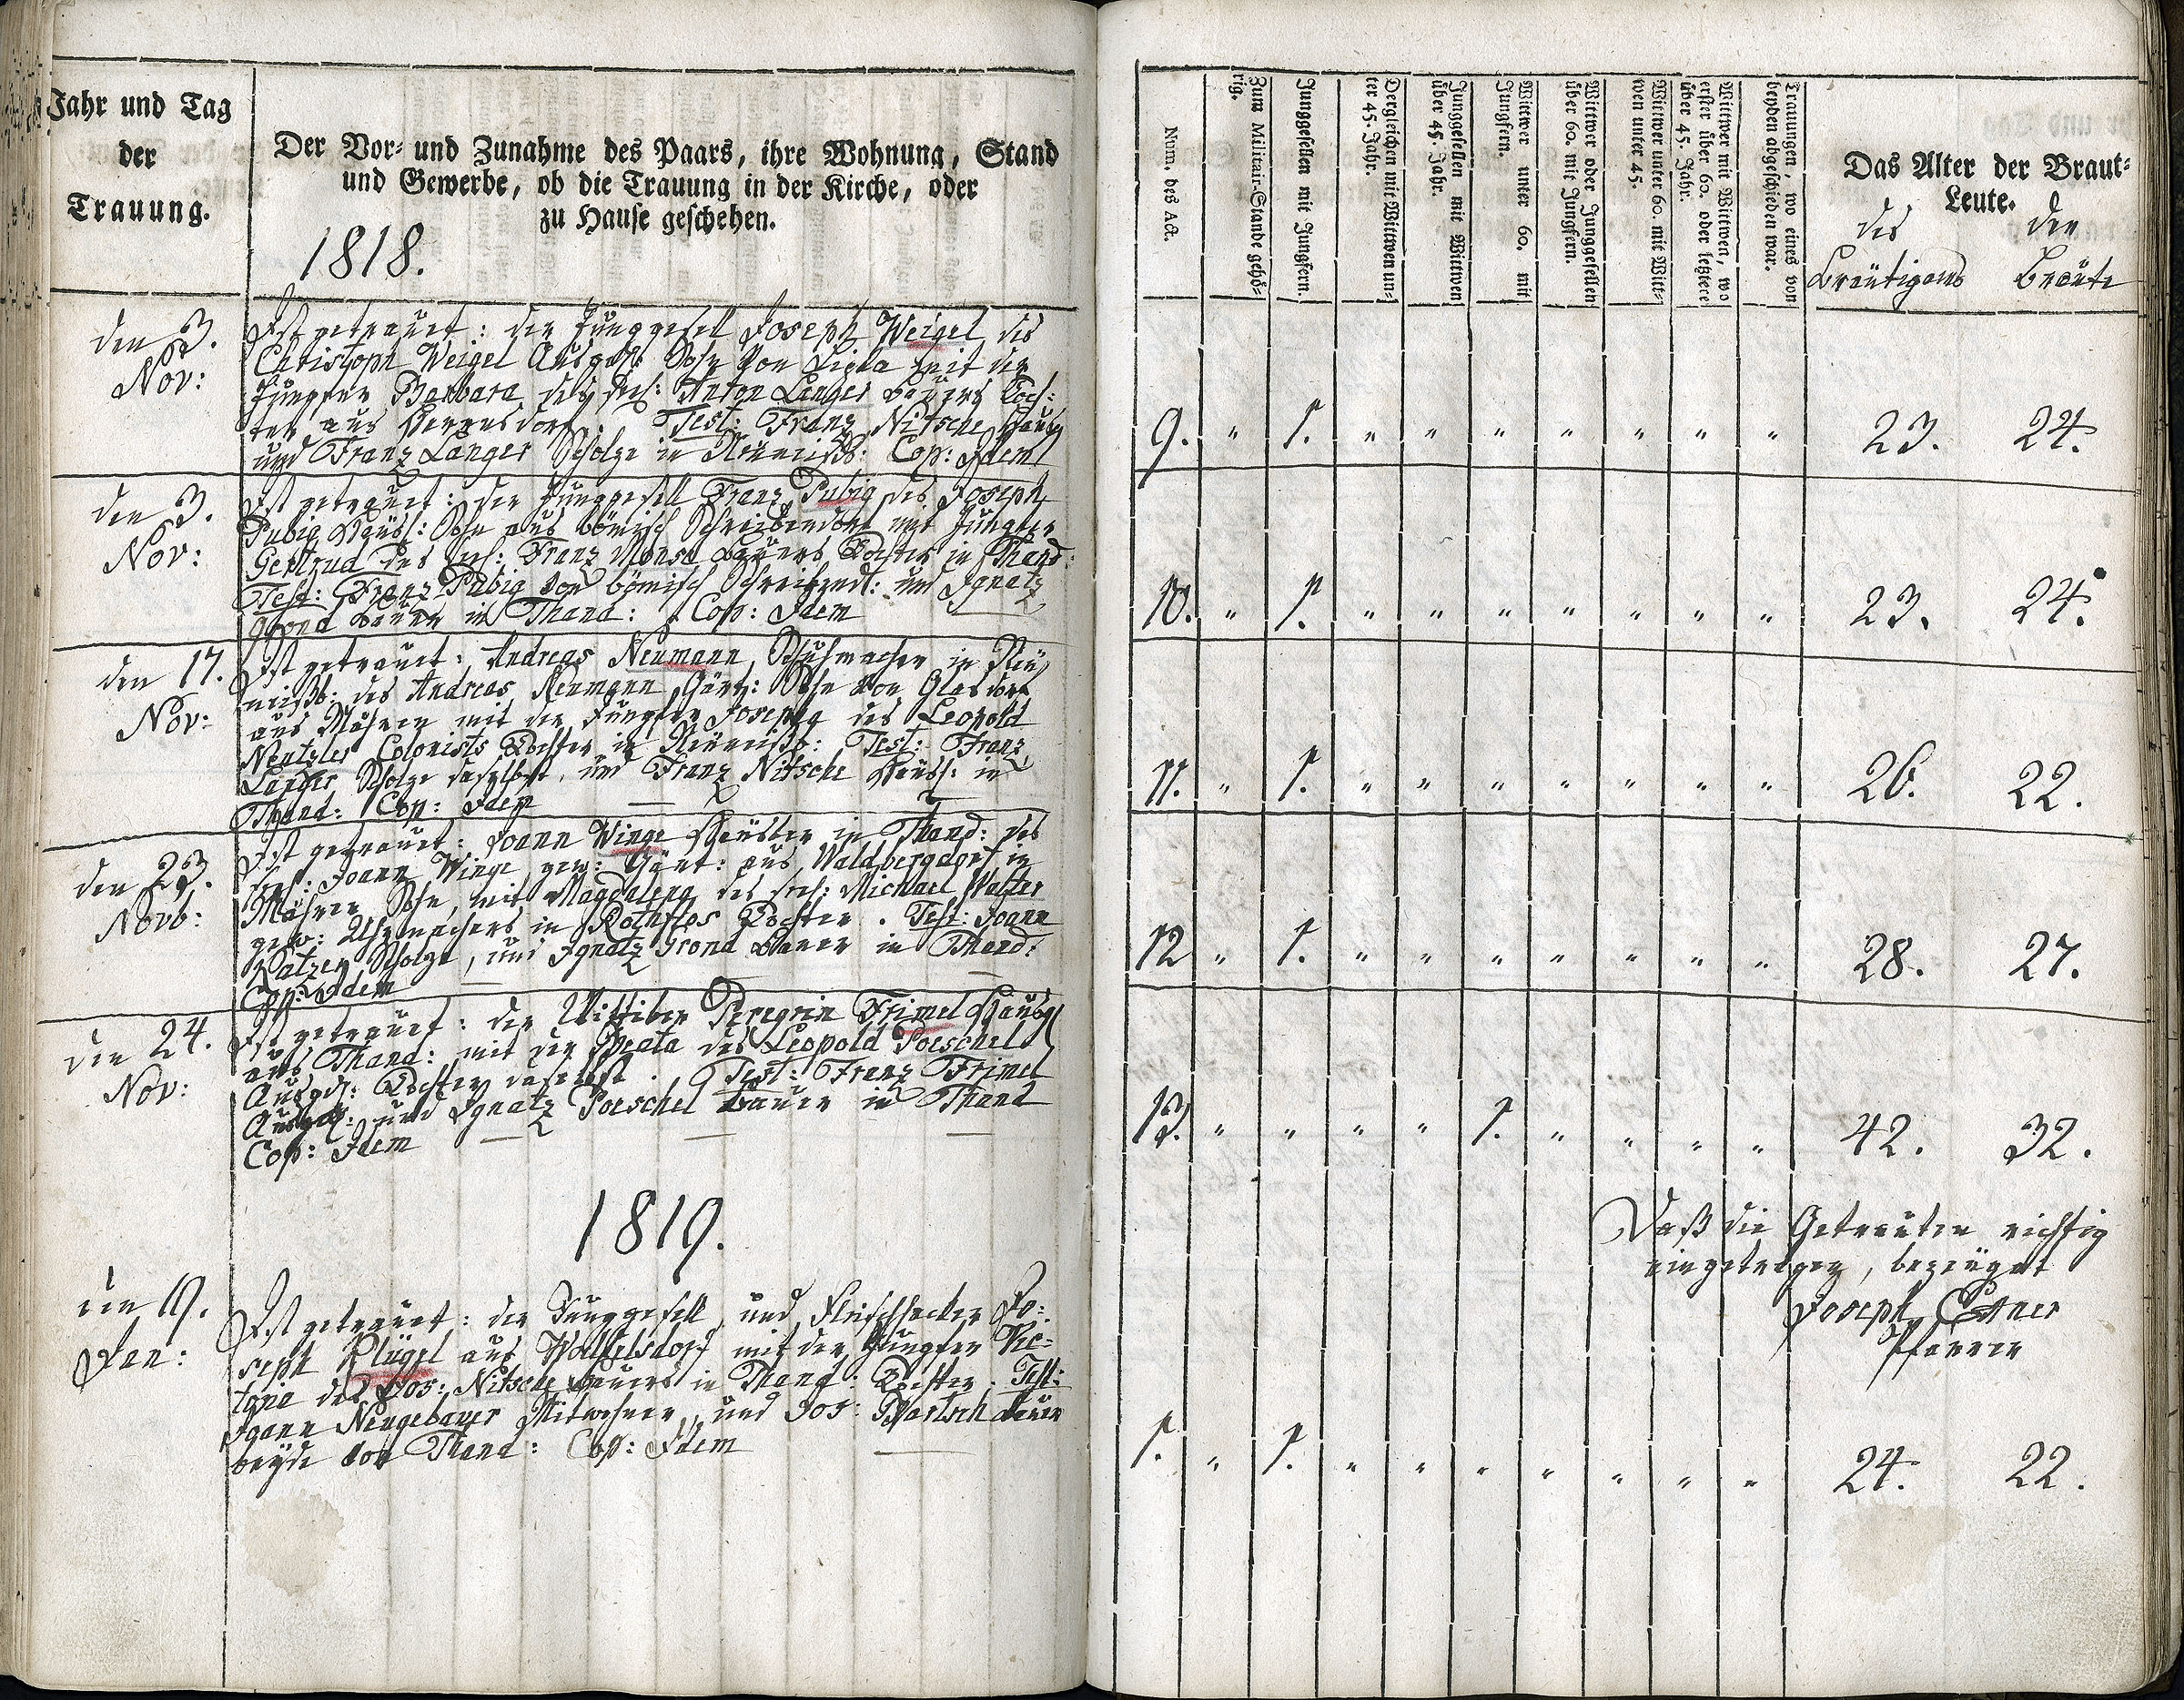 Jahr und Tag
der
Trauung.
Der Vor- und Zunahme des Paars, ihre Wohnung, Stand
und Gewerbe, ob die Trauung in der Kirche, oder
zu Hause geschehen.
1818.
den 3.
Nov:
Ist getrauet: der Junggesell Joseph Weigel des
Christoph Weigel Sohn von mit der
Jungfer Barbara des Anton Langer Bauers Toch-
ter aus Test: Franz Nitsche
und Franz Langer Scholze in Cop: Idem
den 3.
Nov:
Ist getrauet: der Junggesell Franz Pubig des Joseph
Pubig Häusl: Sohn aus bömisch Schreibendorf mit Jungfer
Gertrud des Franz Monse Bauers Tochter in Thand:
Test: Franz Pubig von bömisch und Ignatz
Grond Bauer in Thand: Cop: Idem
den 17.
Nov:
Ist getrauet: Andreas Neumann, Schuhmacher in Neu
des Andreas Neumann Gärt: Sohn von Glasdorf
aus Mähren mit der Jungfer Josepha des Leopold
Nentzler Colonists Tochter in Test: Franz
Langer Scholze daselbst, und Franz Nitsche Häusl: in
Thand: Cop: Idem
den 23.
Novb:
Ist getrauet: Joann Winge Häusler in Thand: des
Joann Winge gew: Gärt: aus Waldbergdorf in
Mähren Sohn, mit Magdalena des Michael Walter
gew: Uhrmachers in Rothflos Tochter. Test: Joann
Scholze, und Ignatz Grond Bauer in Thand:
Cop: Idem
den 24.
Nov:
Ist getrauet: der Wittiber Peregrin Frimel
aus Thand: mit der Beata des Leopold Poeschel
Tochter daselbst. Test: Franz Frimel
und Ignatz Poeschel Bauer in Thand
Cop: Idem
1819.
den 19.
Jan:
Ist getrauet: der Junggesell und Fleischhacker Jo-
seph Klügel aus Wölfelsdorf mit der Jungfer Vic-
toria des Jos: Nitsche Bauers in Thand: Tochter. Test:
Joann Neugebauer Mitwohner, und Jos: Bartsch Bauer
beyde von Thand: Cop: Idem
Num. des Act.
Zum Militair-Stande gehö-
rig.
Junggesellen mit Jungfern.
Dergleichen mit Wittwen un-
ter 45. Jahr.
Junggesellen mit Wittwen
über 45. Jahr.
Wittwer unter 60. mit
Jungfern.
Wittwer oder Junggesellen
über 60. mit Jungfern.
Wittwer unter 60. mit Witt-
wen unter 45.
Wittwer mit Wittwen, wo
erster über 60. oder letztere
über 45. Jahr.
Trauungen, wo eines von
beyden abgeschieden war.
Das Alter der Braut-
Leute.
des der
Bräutigams Bräute
9. " 1. " " " " " " " 23. 24.
10. " 1. " " " " " " " 23. 24.
11. " 1. " " " " " " " 26. 22.
12 " 1. " " " " " " " 28. 27.
13. " " " " 1. " " " " 42. 32.
Daß die Getrauten richtig
eingetragen, bezeuget
Joseph
Pfarrer
1. " 1. " " " " " " " 24. 22.